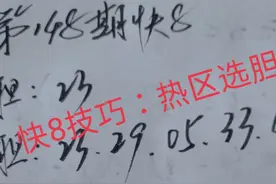 第148期快8
胆：23
快8技巧：热区选胆
胆：23.29.05.33.